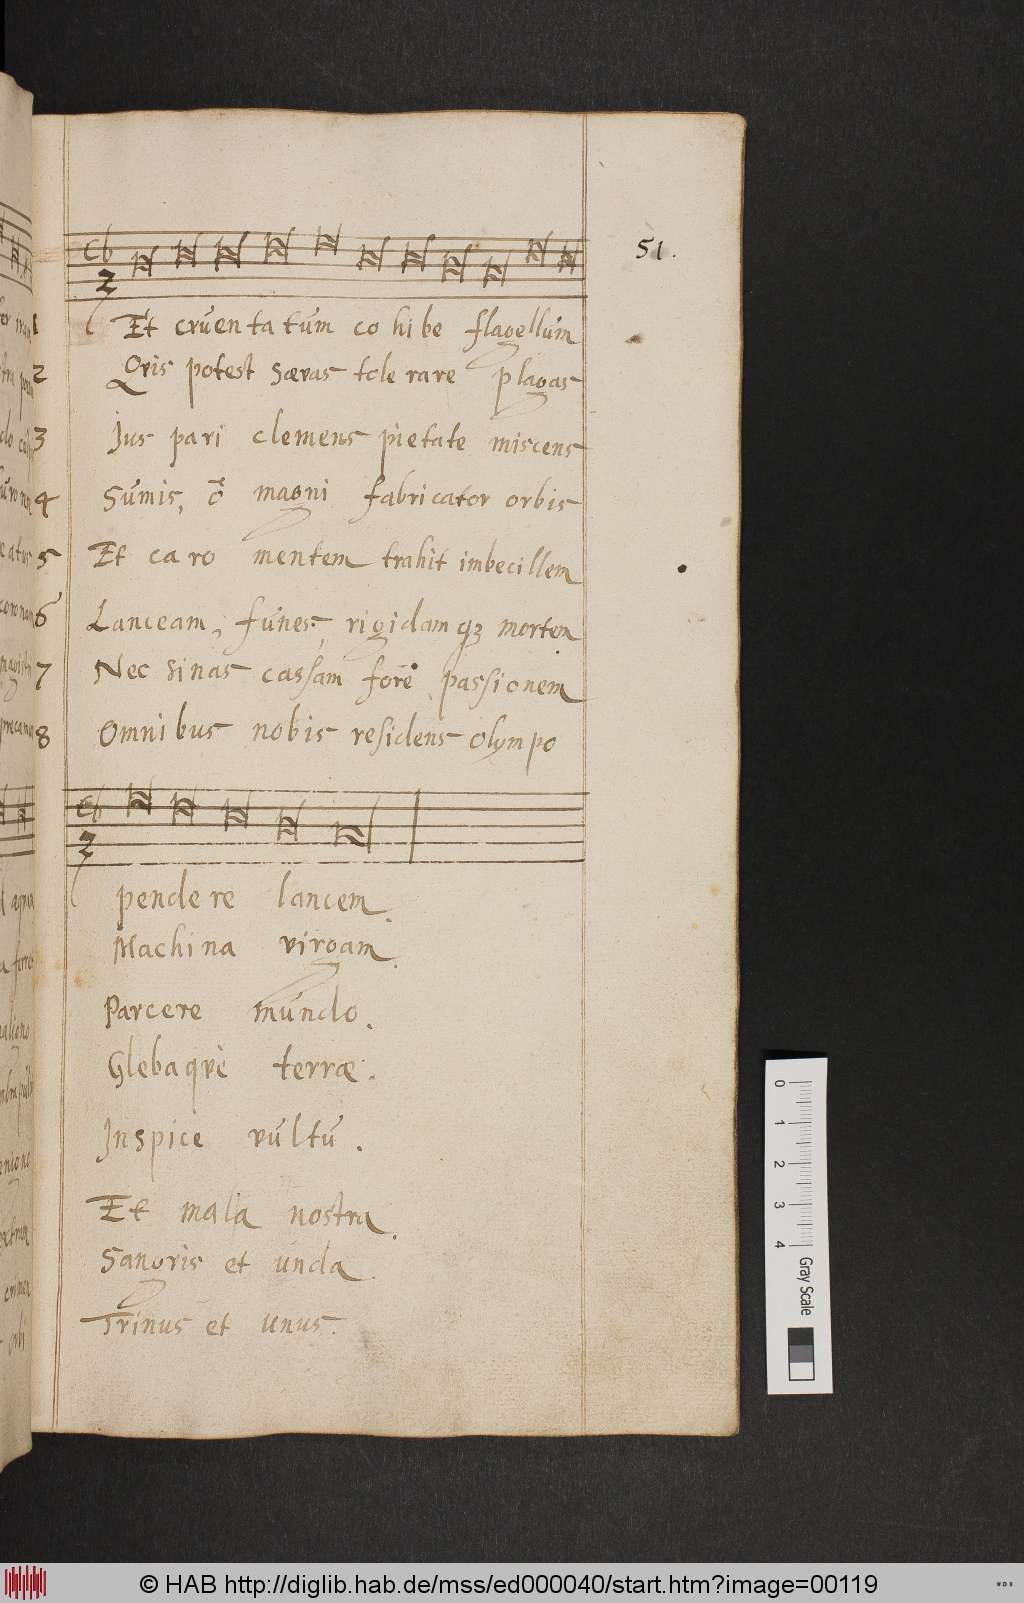 51.
Et cruentatum cohibe flagellum
2 Qvis potest sævas tolerare plagas
3 Jus pari clemens pietate miscens
4 Sumis, ô magni fabricator orbis
5 Et caro mentem trahit imbecillem
6 Lanceam, funes, rigidamqꝫ mortem
7 Nec sinas cassam fore passionem
8 Omnibus nobis residens olympo
pendere lancem.
Machina virgam.
Parcere mundo.
Glebaqve terræ.
Inspice vultu.
Et mala nostra.
Sangvis et unda.
Trinus et unus.
0 1 2 3 4 Gray Scale
© HAB http://diglib.hab.de/mss/ed000040/start.htm?image=00119